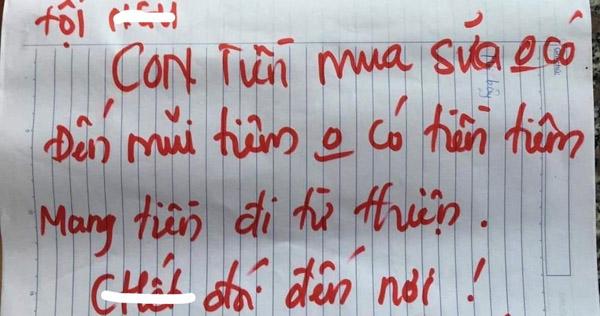 tội
CON Tiền mua sữa o có
Đến mũi tiêm o có tiền tiêm
Mang tiền đi từ thiện.
Chết đá đến nơi !